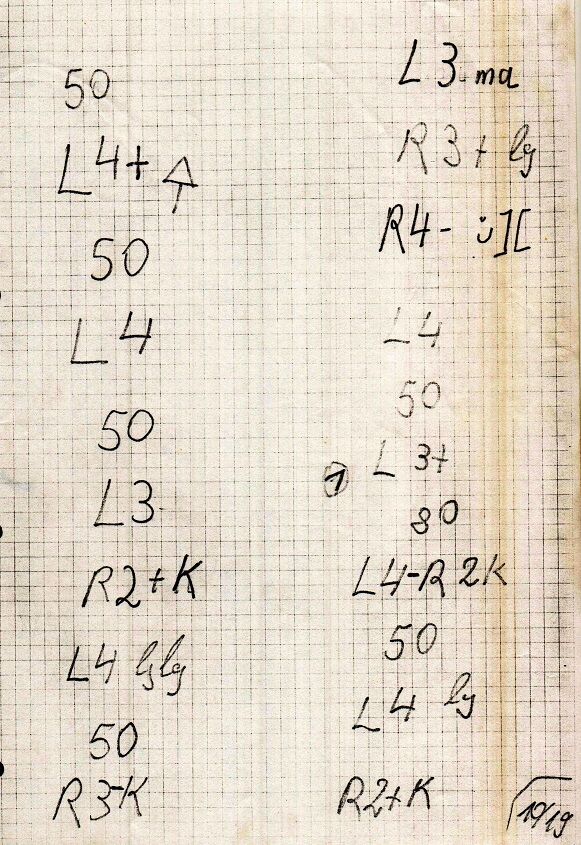 50
L4+ ↑
50
L4
50
L3
R2+K
L4 lglg
50
R3-K
L3 ma
R3+ lg
R4- ü][
L4
50
1 L3+
80
L4-R2K
50
L4 lg
R2+K
10/19